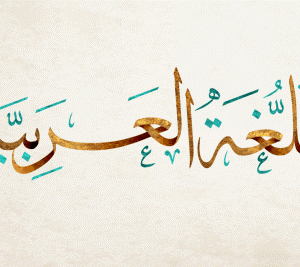 للُّغَة العَرَبِيَّـ